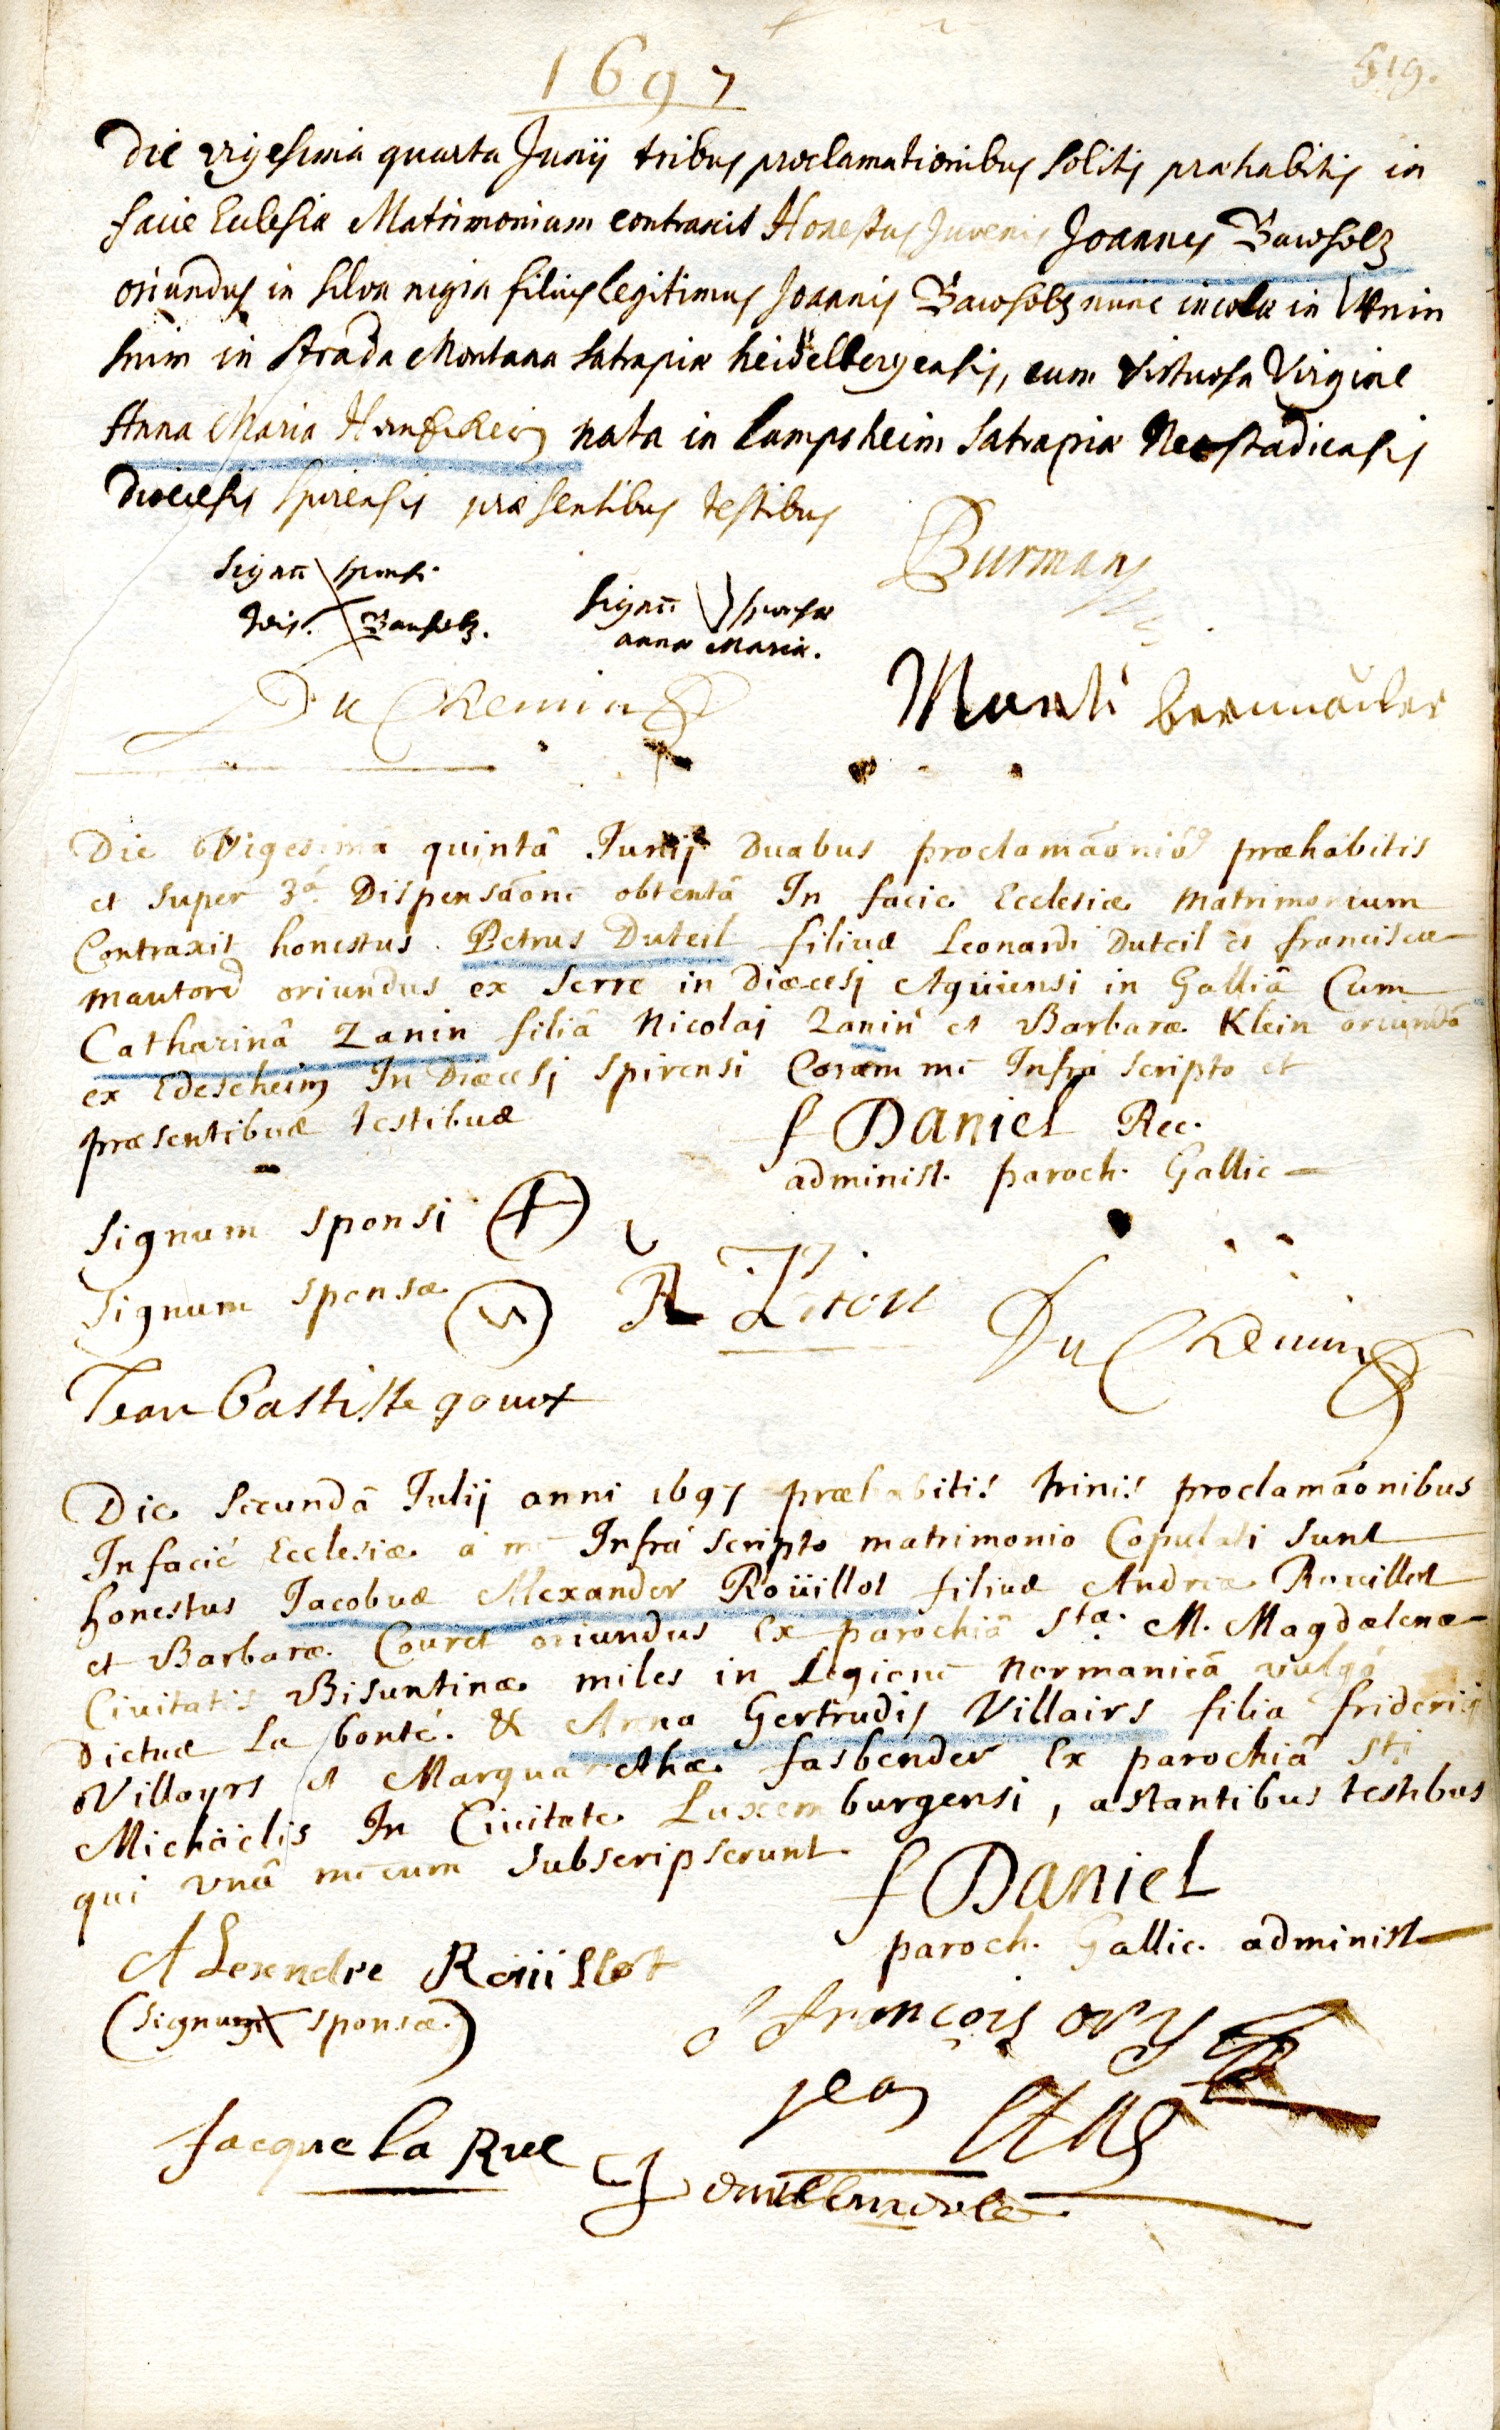 1697
519.
Die vigesima quarta Junij tribus proclamationibus solitis præhabitis in
facie Eclesiæ Matrimonium contraxit Honestus Juvenis Joannes Bawholtz
oriundus in silva nigra filius legitimus Joannis Bawholtz nunc incolæ in
in strada Montana satrapiæ heidelbergensis, cum virtuosa Virgine
Anna Maria nata in Lampsheim Satrapiæ Neostadiensis
Diœcesis spirensis præsentibus testibus
Burman
Signū sponsi
Jois. Bauholtz.
Signū sponsæ
annæ Mariæ.
Du Chemin
Marti
Die Vigesimâ quintâ Junij Duabus proclamāonibꝰ præhabitis
et super 3â. Dispensāone obtentâ In facie Ecclesiæ Matrimonium
Contraxit honestus Petrus Duteil filius Leonardi Duteil et franciscæ
mautord oriundus ex Serre in Diœcesi in Galliâ Cum
Catharinâ Zanin filiâ Nicolai Zanin et Barbaræ Klein oriundâ
ex Edescheim In Diœcesi Spirensi Coram me Infra scripto et
præsentibus testibus
f Daniel Rec.
administ. paroch. Gallic
Signum sponsi +
Signum sponsæ
Du Chemin
Jean Bastiste gouot
Die Secundâ Julij anni 1697 præhabitis trinis proclamāonibus
In facie Ecclesiæ a me Infra scripto matrimonio Copulati sunt
honestus Jacobus Alexander Roüillot filius Andreæ Rouillot
et Barbaræ Couret oriundus Ex parochiâ Stæ. M. Magdalenæ
Civitatis Bisuntinæ miles in Legione Normanicâ vulgó
Dictus La bonté. & Anna Gertrudis Villairs filia friderici
Villayrs et Marguarethæ fasbender Ex parochiâ Sti
Michäelis In Civitate Luxemburgensi, astantibus testibus
qui vnâ mecum subscripserunt
f Daniel
paroch. Gallic. administ
ALexendre Roüillot
(Signum sponsæ.)
françois ory
jean
Jacque La Rue